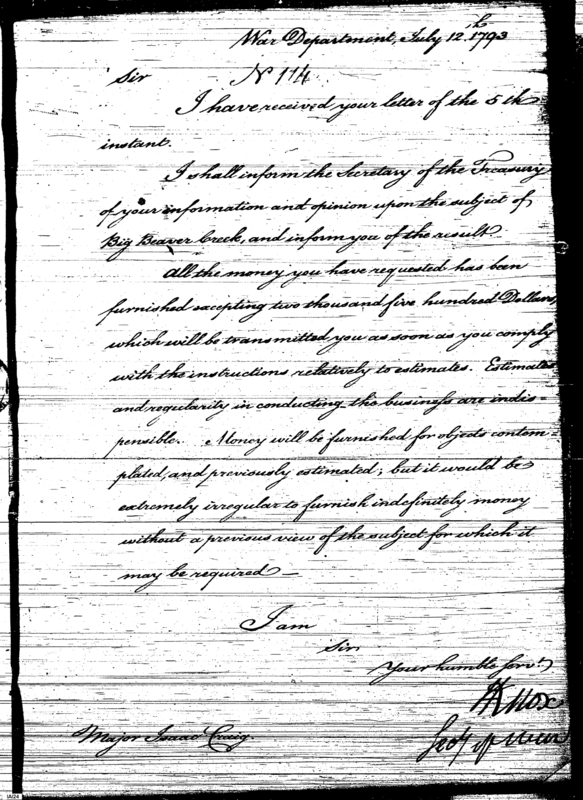 War Department, July 12.th 1793
Sir
No 114
I have received your letter of the 5th
instant.
I shall inform the Secretary of the Treasury
of your information and opinion upon the subject of
Big Beaver Creek, and inform you of the result.
All the money you have requested has been
furnished excepting two thousand five hundred Dollars,
which will be transmitted you as soon as you comply
with the instructions relatively to estimates. Estimates
and regularity in conducting the business are indis=
pensible. Money will be furnished for objects contem=
plated, and previously estimated; but it would be
extremely irregular to furnish indefinitely money
without a previous view of the subject for which it
may be required —
I am
Sir
Your humble Servt.
HKnox
Secy of War
Major Isaac Craig.